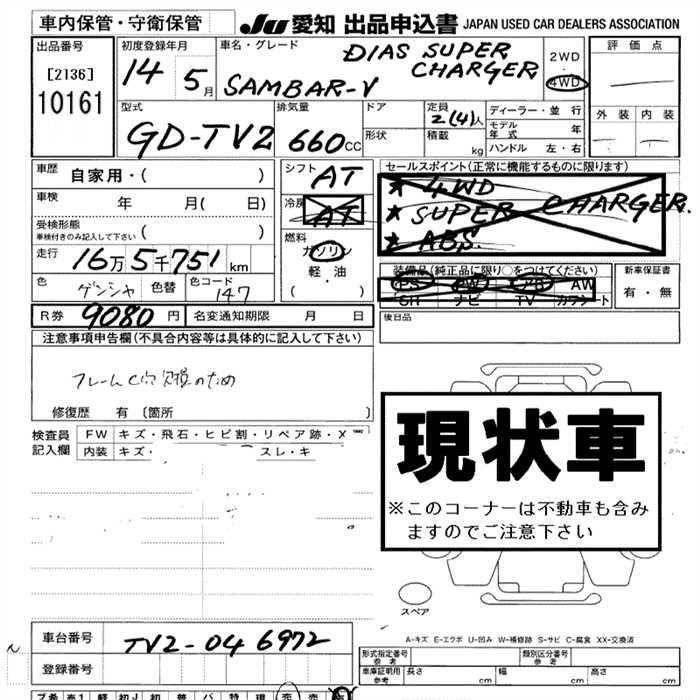 車内保管・守衛保管
JU 愛知 出品申込書 JAPAN USED CAR DEALERS ASSOCIATION
出品番号
[2136]
10161
初度登録年月
14 5月
車名・グレード
DIAS SUPER
CHARGER
SAMBAR-V
2WD
・
4WD
評価点
外装 内装
型式
GD-TV2
排気量
660cc
ドア
形状
定員
2(4)人
積載
kg
ディーラー・並行
モデル
年式 年
ハンドル 左・右
車歴
自家用・( )
車検
年 月( 日)
受検形態
車検付きのみ記入して下さい ( )
走行
16万5千751km
色
ゲンシヤ
色替
色コード
147
シフト
AT
冷房
AT
燃料
ガソリン
・
軽・油
( )
セールスポイント(正常に機能するものに限ります)
★ 4WD
★ SUPER CHARGER.
★ ABS.
装備品(純正品に限り○をつけてください)
PS PW AB AW
SR ナビ TV カワシート
新車保証書
有・無
R券 9080円
名変通知期限 月 日
後日品
注意事項申告欄(不具合内容等は具体的に記入して下さい)
のため
修復歴 有 〔箇所 〕
検査員
記入欄
FW キズ・飛石・ヒビ割・リペア跡・
内装 キズ・ スレ・キ
現状車
※このコーナーは不動車も含み
ますのでご注意下さい
スペア
A-キズ E-エクボ U-凹み W-補修跡 S-サビ C-腐食 XX-交換済
車台番号
TV2-046972
登録番号
形式指定番号
参考
類別区分番号
参考
車庫証明用
参考
長さ cm
幅 cm
高さ cm